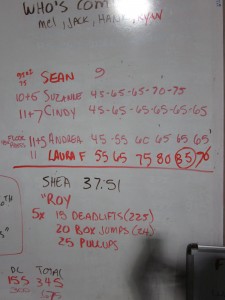 WHO'S COM
MEL, JACK, HANK, RYAN
75
SEAN 9
10+6 SUZANNE 45-65-65-70-75
11+7 CINDY 45-65-65-65-65-65
FLOOR PRESS 11+5 ANDREA 45 55 60 65 65 65
11 LAURA F 55 65 75 80 85 70
SHEA 37:51
"ROY
5x 15 DEADLIFTS (225)
20 BOX JUMPS (24)
25 PULLUPS
DL TOTAL
155 345
675